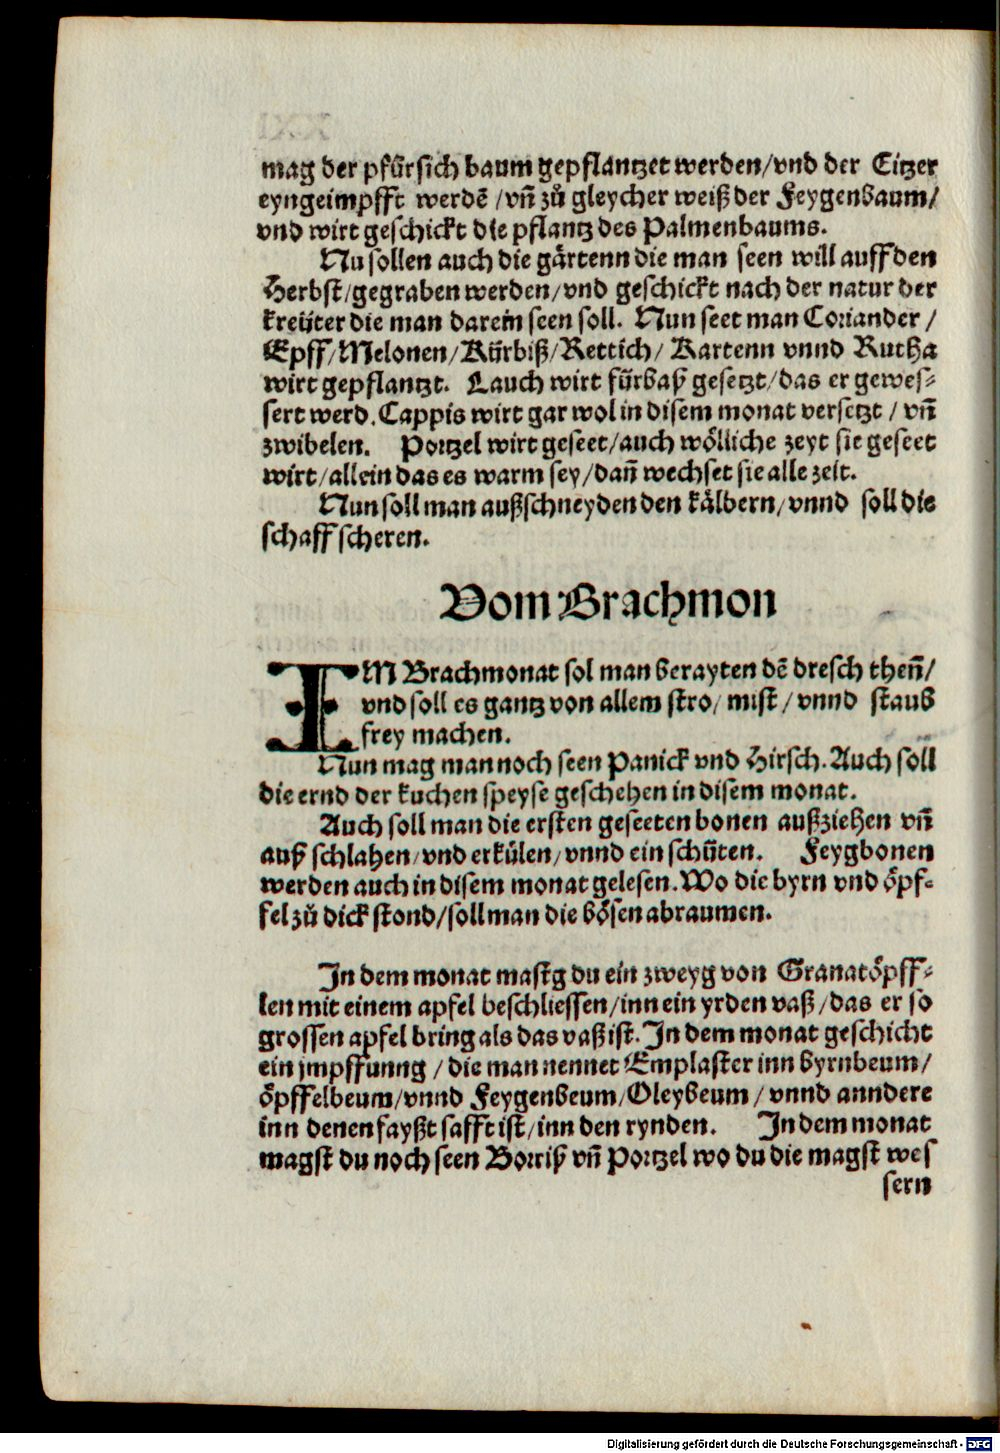 mag der pfůrsich baum gepflantzet werden/vnd der Citzer
eyngeimpfft werdē /vñ zů gleycher weiß der Feygenbaum/
vnd wirt geschickt die pflantz des Palmenbaums.
Nu sollen auch die gärtenn die man seen will auff den
Herbst/gegraben werden/vnd geschickt nach der natur der
kreüter die man darein seen soll. Nun seet man Coriander /
Epff/Melonen/Kürbiß/Rettich/ Kartenn vnnd Rutha
wirt gepflantzt. Lauch wirt fürbaß gesetzt/das er gewes-
sert werd. Cappis wirt gar wol in disem monat versetzt / vñ
zwibelen. Portzel wirt geseet/auch wölliche zeyt sie geseet
wirt/allein das es warm sey/dañ wechset sie alle zeit.
Nun soll man außschneyden den kälbern/vnnd soll die
schaff scheren.
Vom Brachmon
IM Brachmonat sol man berayten dē dresch theñ/
vnd soll es gantz von allem stro/ mist / vnnd staub
frey machen.
Nun mag man noch seen Panick vnd Hirsch. Auch soll
die ernd der kuchen speyse geschehen in disem monat.
Auch soll man die ersten geseeten bonen außziehen vñ
auß schlahen/vnd erkülen/vnnd ein schüten. Feygbonen
werden auch in disem monat gelesen. Wo die byrn vnd öpf-
fel zů dick stond/soll man die bösen abraumen.
In dem monat mastg du ein zweyg von Granatöpff-
len mit einem apfel beschliessen/inn ein yrden vaß/das er so
grossen apfel bring als das vaß ist. In dem monat geschicht
ein jmpffunng / die man nennet Emplaster inn byrnbeum/
öpffelbeum/vnnd Feygenbeum/Oleybeum / vnnd anndere
inn denen fayßt safft ist/inn den rynden. In dem monat
magst du noch seen Borriß vñ Portzel wo du die magst wes
sern
Digitalisierung gefördert durch die Deutsche Forschungsgemeinschaft - DFG